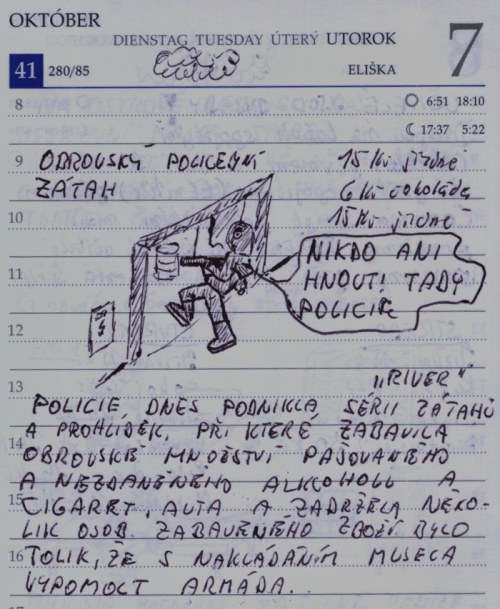 OKTÓBER
DIENSTAG TUESDAY ÚTERÝ UTOROK
7
41 280/85
ELIŠKA
8
6:51 18:10
17:37 5:22
9 OBROVSKÝ POLICEJNÍ
15 Kč jízdné
ZÁTAH
6 Kč čokoláda
10
15 Kč jízdné
NIKDO ANI
11
HNOUT! TADY
POLICIE
12
13
"RIVER"
POLICIE DNES PODNIKLA SÉRII ZÁTAHŮ
14
A PROHLÍDEK, PŘI KTERÉ ZABAVILA
OBROVSKÉ MNOŽSTVÍ PAŠOVANÉHO
A NEZDANĚNÉHO ALKOHOLU A
15
CIGARET, AUTA A ZADRŽELA NĚKO-
LIK OSOB. ZABAVENÉHO ZBOŽÍ BYLO
16 TOLIK, ŽE S NAKLÁDÁNÍM MUSELA
VYPOMOCT ARMÁDA...